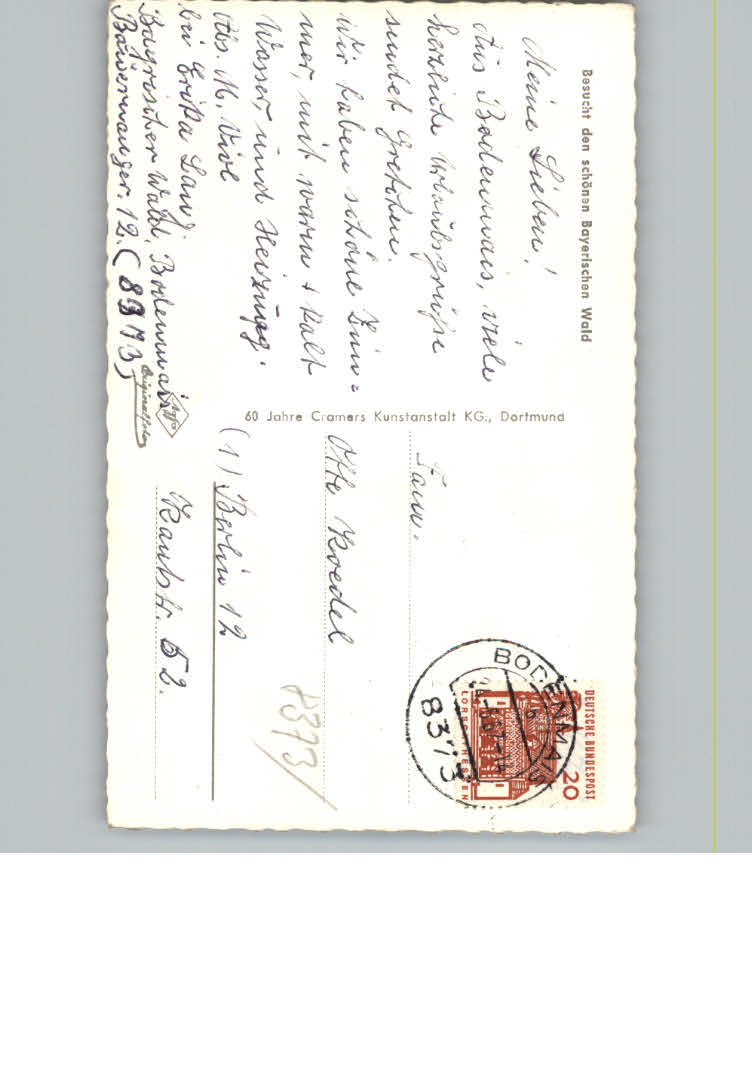 Besucht den schönen Bayerischen Wald
Meine Lieben!
Aus Bodenmais, viele
herzliche Urlaubsgrüße
sendet Gretchen.
Wir haben schöne Zim=
mer, mit warm + kalt
Wasser, und Heizung.
Abs. M. Viol
bei Erika Lang
Bayrischer Wald, Bodenmais
(8373)
Agfa
Originalfoto
60 Jahre Cramers Kunstanstalt KG., Dortmund
Fam.
Otto Kredel
(1) Berlin 12
Kantstr. 52.
8373/
DEUTSCHE BUNDESPOST
20
LORSCH HESSEN
BODENMAIS
8373